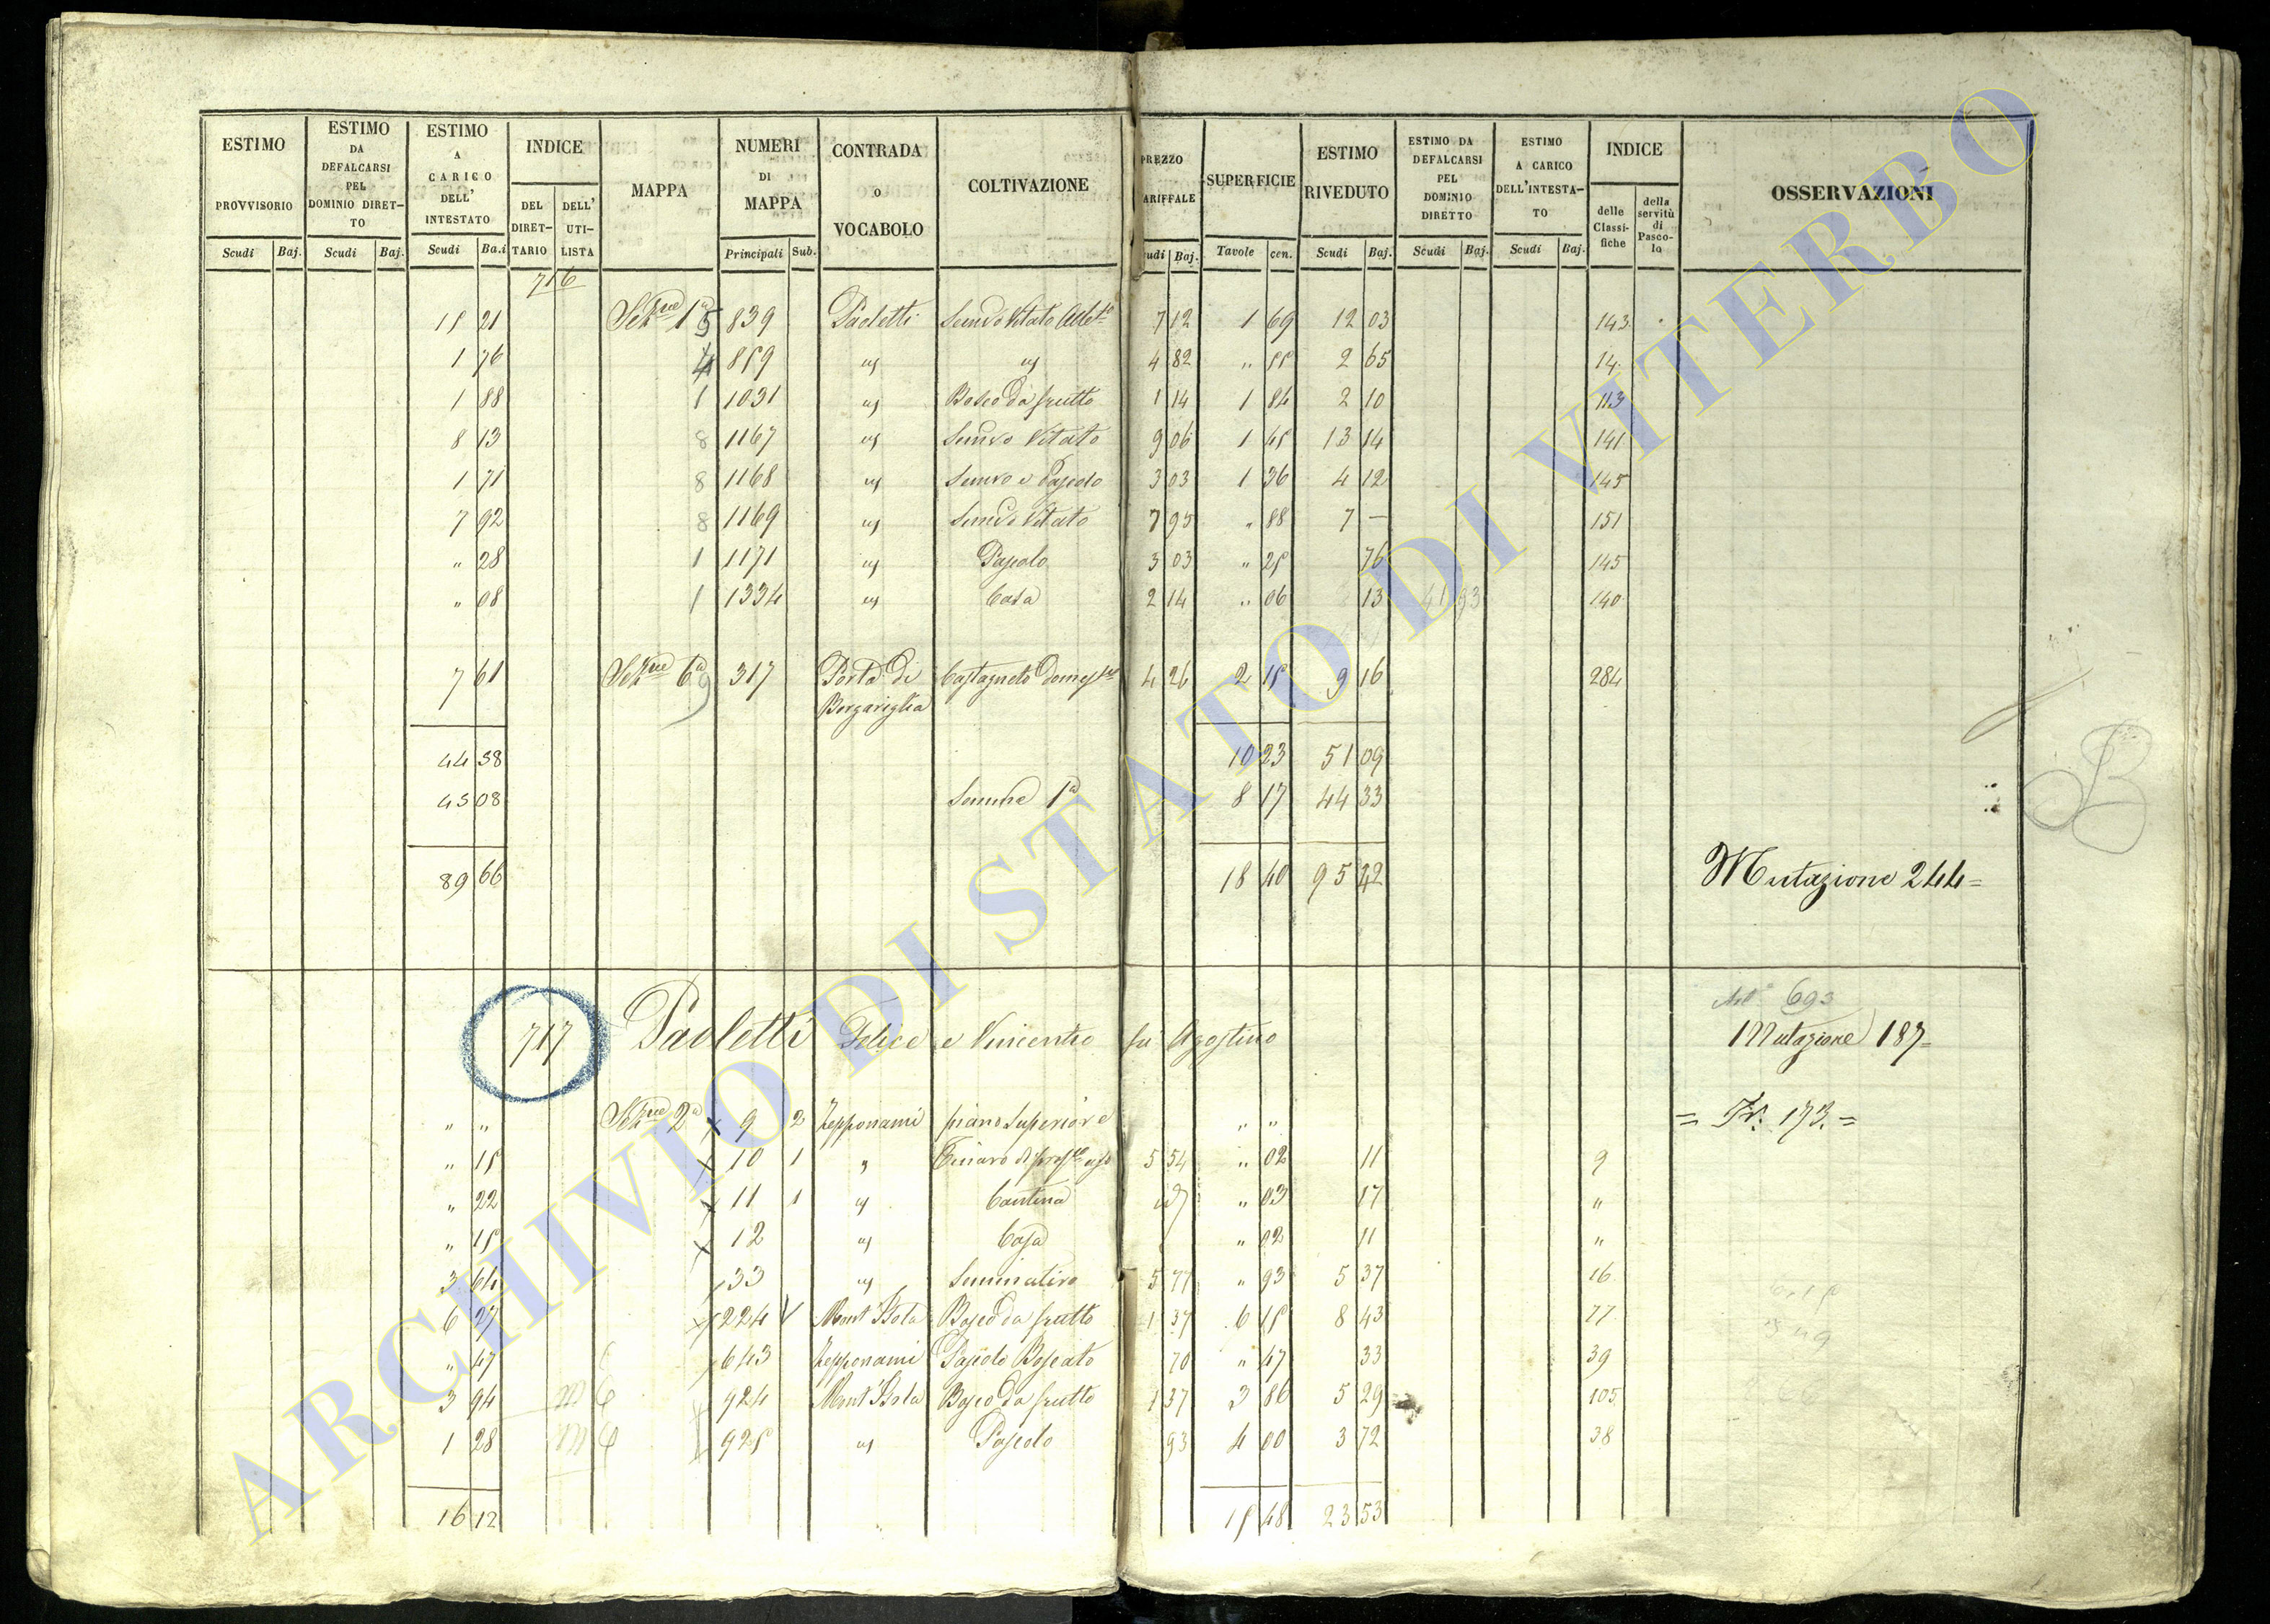 ESTIMO PROVVISORIO
Scudi Baj.
ESTIMO DA DEFALCARSI PEL DOMINIO DIRET-TO
Scudi Baj.
ESTIMO A CARICO DELL' INTESTATO
Scudi Ba.i
INDICE
DEL DIRET-TARIO
DELL' UTI-LISTA
MAPPA
NUMERI DI MAPPA
Principali Sub.
CONTRADA O VOCABOLO
COLTIVAZIONE
PREZZO
ARIFFALE
udi Baj.
SUPERFICIE
Tavole cen.
ESTIMO RIVEDUTO
Scudi Baj.
ESTIMO DA DEFALCARSI PEL DOMINIO DIRETTO
Scudi Baj.
ESTIMO A CARICO DELL'INTESTA-TO
Scudi Baj.
INDICE
delle Classi-fiche
della servitù di Pasco-lo
OSSERVAZIONI
716
15 21 Sez.ne 1a 5 839 Paoletti 7 12 1 69 12 03 143
1 76 4 859 " " 4 82 " 55 2 65 14
1 88 1 1031 " Bosco da frutto 1 14 1 84 2 10 113
8 13 8 1167 " Semvo Vitato 9 06 1 45 13 14 141
1 71 8 1168 " Semvo e Pascolo 3 03 1 36 4 12 145
7 92 8 1169 " Semvo Vitato 7 95 " 88 7 — 151
" 28 1 1171 " Pascolo 3 03 " 25 76 145
" 08 1 1334 " Casa 2 14 " 06 13 41 93 140
7 61 Sez.ne 6a 9 317 Porta di Castagneto Domes 4 26 2 15 9 16 284
Borgariglia
44 58 10 23 51 09
45 08 Somma 1a 8 17 44 33
89 66 18 40 95 42 Mutazione 244=
693
717 Paoletti Felice e Vincenzo fu Agostino Mutazione 187=
" " Sez.ne 2a 9 2 Zepponami piano Superiore " " = Tr. 173. =
" 15 10 1 " 5 54 " 02 11 9
" 22 11 1 " Cantina " 03 17 "
" 15 12 " Casa " 02 11 "
3 64 33 " Seminativo 5 77 " 93 5 37 16
6 27 224 Mont'Isola Bosco da frutto 1 37 6 15 8 43 77
" 47 643 Zepponami Pascolo Boscato 70 " 47 33 39
3 94 m 6 924 Mont'Isola Bosco da frutto 1 37 3 86 5 29 105
1 28 m 6 925 " Pascolo 93 4 00 3 72 38
16 12 15 48 23 53
B
ARCHIVIO DI STATO DI VITERBO